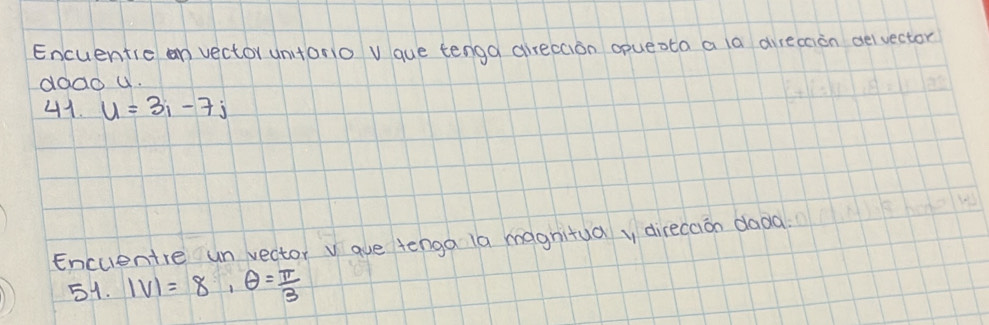 Encuentre un vector unitario v que tenga dirección opuesta a la dirección del vector
dado u.
41. u = 3i - 7j
Encuentre un vector v que tenga la magnitud y dirección dada.
51. |V| = 8, θ = π/3